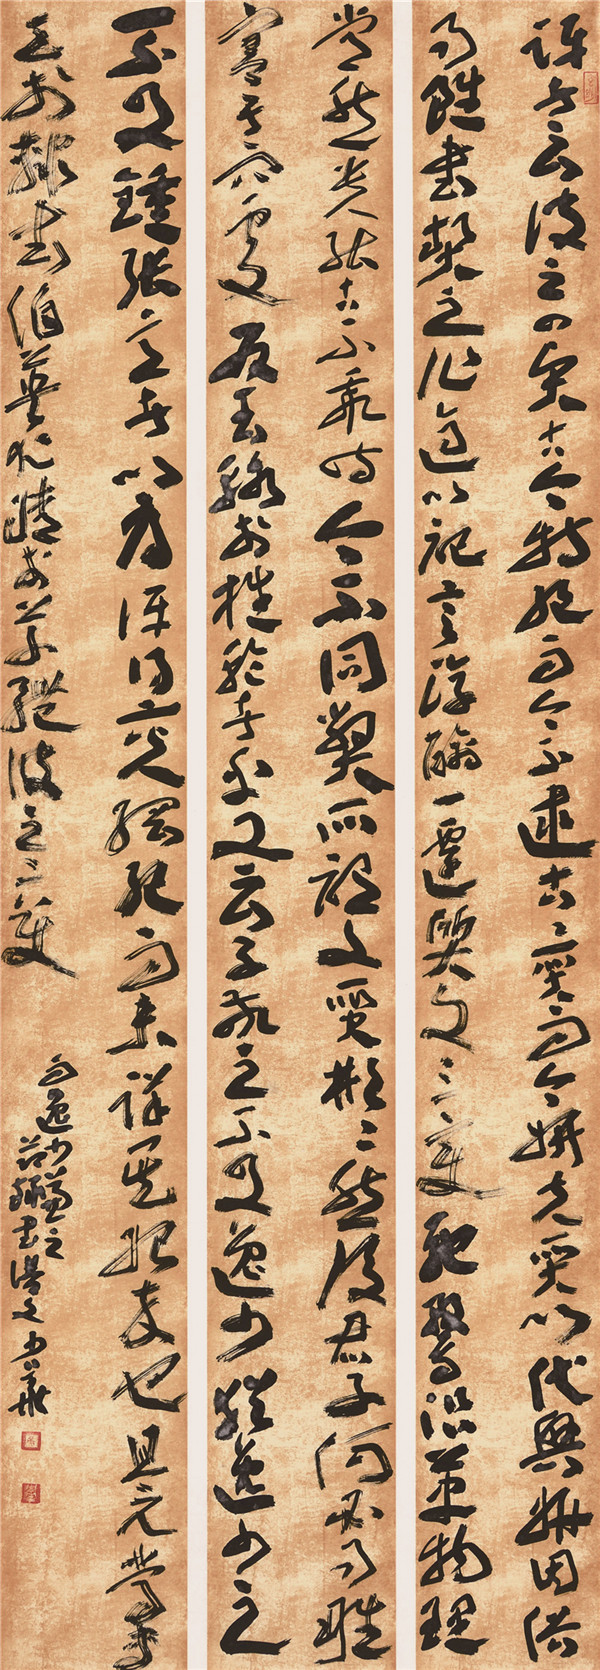 評者云彼之四賢古今特絕而今不逮古々質而今妍夫質以代興妍因俗
易雖書契之作適以記言淳醨一遷質文三變馳騖沿革物理
常然貴能古不乖時今不同弊所謂文質彬々然後君子何必易雕
宮於穴處反玉輅於椎輪者乎又云子敬之不及逸少猶逸少之
不及鍾張意者以為評得其綱紀而未詳其始卒也且元常專
工於隸書伯英尤精於草體彼之二美
而逸少兼之
節録書譜文